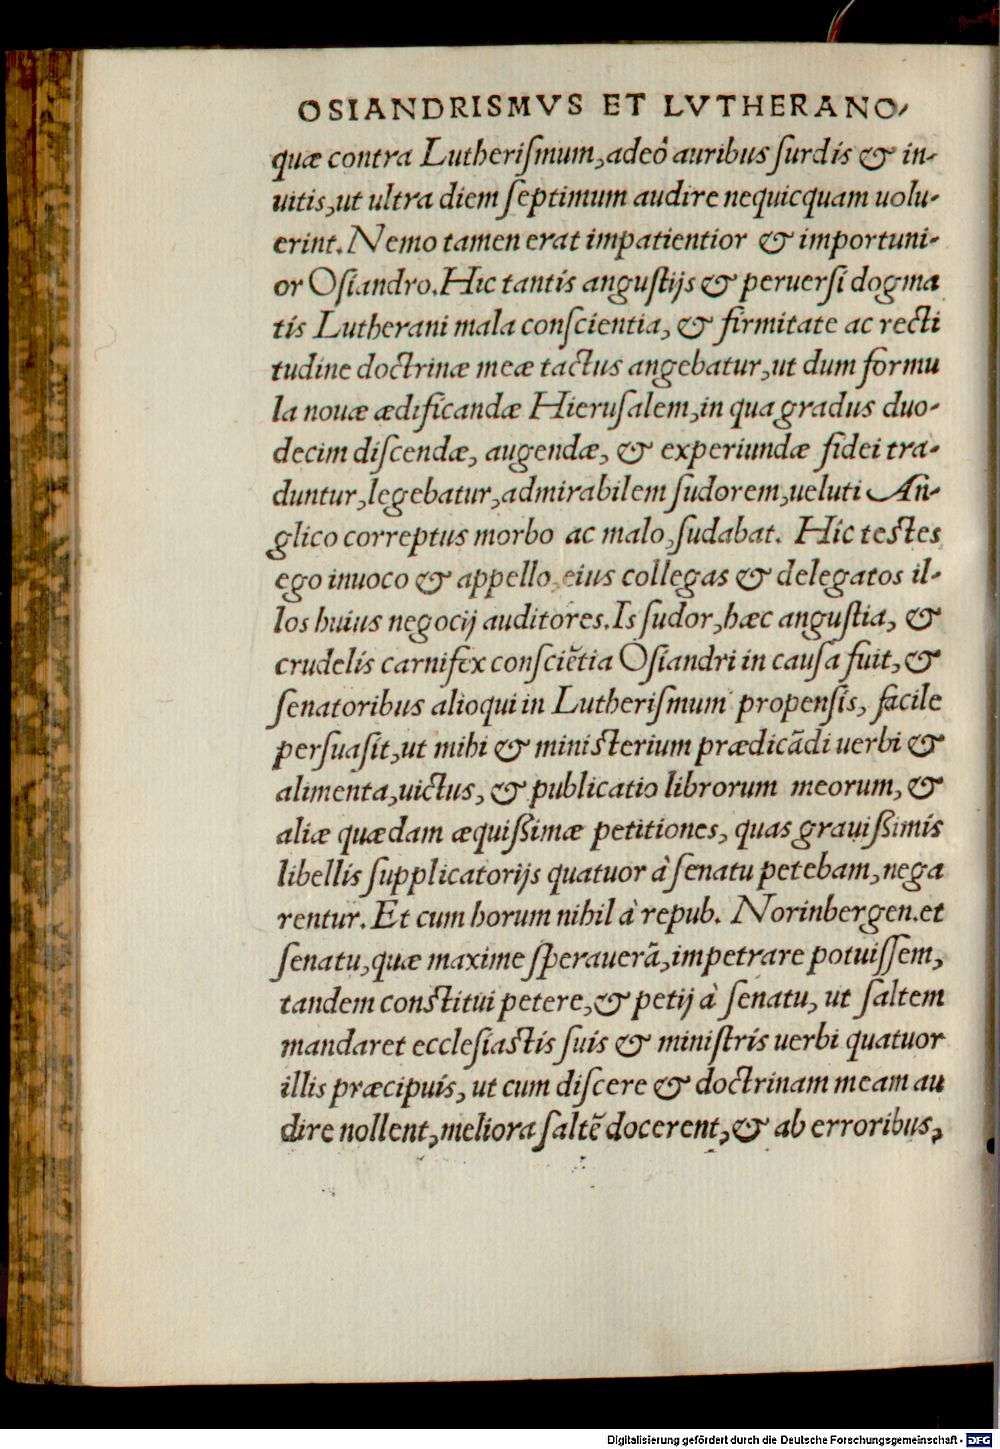 OSIANDRISMVS ET LVTHERANO-
quæ contra Lutheriſmum, adeò auribus ſurdis & in-
uitis, ut ultra diem ſeptimum audire nequicquam uolu-
erint. Nemo tamen erat impatientior & importuni-
or Oſiandro. Hic tantis anguſtijs & peruerſi dogma
tis Lutherani mala conſcientia, & firmitate ac recti
tudine doctrinæ meæ tactus angebatur, ut dum formu
la nouæ ædificandæ Hieruſalem, in qua gradus duo-
decim diſcendæ, augendæ, & experiundæ fidei tra-
duntur, legebatur, admirabilem ſudorem, ueluti An-
glico correptus morbo ac malo, ſudabat. Hic testes
ego inuoco & appello eius collegas & delegatos il-
los huius negocij auditores. Is ſudor, hæc anguſtia, &
crudelis carnifex conſciẽtia Oſiandri in cauſa fuit, &
ſenatoribus alioqui in Lutheriſmum propenſis, facile
perſuaſit, ut mihi & ministerium prædicãdi uerbi &
alimenta, uictus, & publicatio librorum meorum, &
aliæ quædam æquißimæ petitiones, quas grauißimis
libellis ſupplicatorijs quatuor à ſenatu petebam, nega
rentur. Et cum horum nihil à repub. Norinbergen. et
ſenatu, quæ maxime ſperauerã, impetrare potuiſſem,
tandem constitui petere, & petij à ſenatu, ut ſaltem
mandaret eccleſiastis ſuis & miniſtris uerbi quatuor
illis præcipuis, ut cum diſcere & doctrinam meam au
dire nollent, meliora ſaltẽ docerent, & ab erroribus,
Digitalisierung gefördert durch die Deutsche Forschungsgemeinschaft - DFG